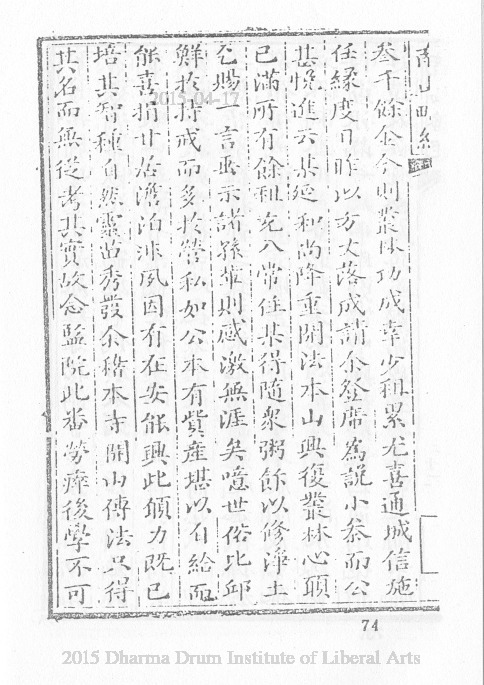 叁千餘金今則叢林功成幸少租累尤喜通城信施
任緣度日昨以方丈落成請余登席為說小叅而公
甚悅進云某延和尚降重開法本山興復叢林心願
已滿所有餘租充入常住某得隨眾粥飯以修淨土
乞賜一言垂示諸孫輩則感激無涯矣噫世俗比邱
鮮於持戒而多於營私如公本有貲產堪以自給而
能喜捐甘居澹泊非夙因有在安能興此傾力既已
培其智種自然靈苗秀發余稽本寺開山傳法只得
其名而無從考其實故念監院此番勞瘁後學不可
74
2015-04-17
2015 Dharma Drum Institute of Liberal Arts